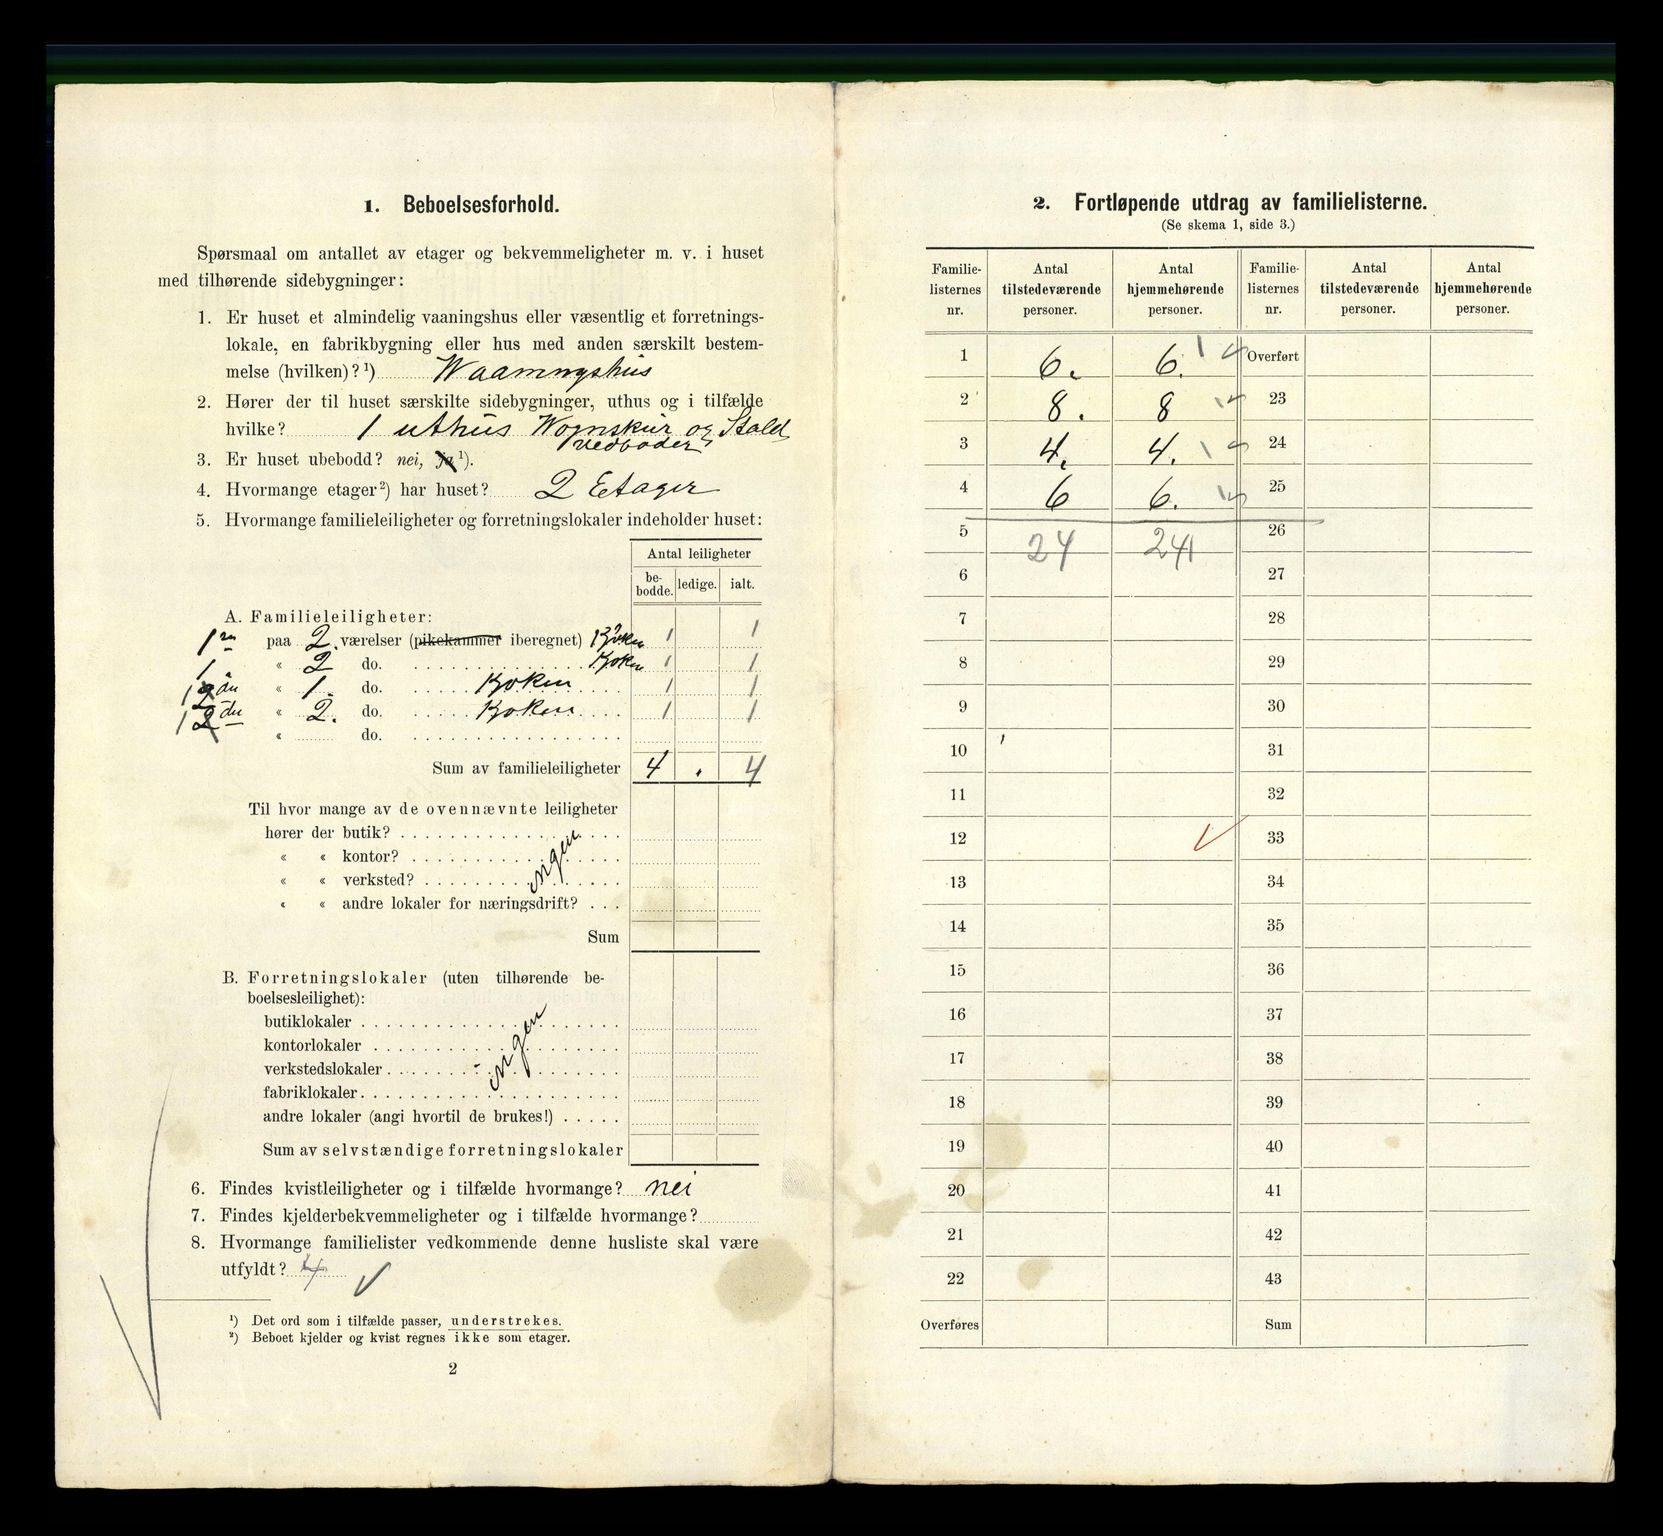 1. Beboelsesforhold.
Spørsmaal om antallet av etager og bekvemmeligheter m. v. i huset
med tilhørende sidebygninger:
1. Er huset et almindelig vaaningshus eller væsentlig et forretnings-
lokale, en fabrikbygning eller hus med anden særskilt bestem-
melse (hvilken)? ¹) Waaningshus
2. Hører der til huset særskilte sidebygninger, uthus og i tilfælde
hvilke? 1 uthus Wognskur og Stald
vedboder
3. Er huset ubebodd? nei, ja ¹).
4. Hvormange etager ²) har huset? 2 Etager
5. Hvormange familieleiligheter og forretningslokaler indeholder huset:
Antal leiligheter
be-
bodde. ledige. ialt.
A. Familieleiligheter:
paa 2. værelser (pikekammer iberegnet) Kjøken 1 1
1 « 2 do. Kjoken 1 1
1 « 1. do. Kjoken 1 1
1 « 2. do. Kjoken 1 1
« do.
Sum av familieleiligheter 4 . 4
Til hvor mange av de ovennævnte leiligheter
hører der butik?
« « kontor? ingen
« « verksted?
« « andre lokaler for næringsdrift?
Sum
B. Forretningslokaler (uten tilhørende be-
boelsesleilighet):
butiklokaler
kontorlokaler ingen
verkstedslokaler
fabriklokaler
andre lokaler (angi hvortil de brukes!)
Sum av selvstændige forretningslokaler
6. Findes kvistleiligheter og i tilfælde hvormange? nei
7. Findes kjelderbekvemmeligheter og i tilfælde hvormange?
8. Hvormange familielister vedkommende denne husliste skal være
utfyldt? 4
¹) Det ord som i tilfælde passer, understrekes.
²) Beboet kjelder og kvist regnes ikke som etager.
2
2. Fortløpende utdrag av familielisterne.
(Se skema 1, side 3.)
Familie- Antal Antal Familie- Antal Antal
listernes tilstedeværende hjemmehørende listernes tilstedeværende hjemmehørende
nr. personer. personer. nr. personer. personer.
1 6. 6. Overført
2 8. 8 23
3 4. 4. 24
4 6 6. 25
5 24 24 26
6 27
7 28
8 29
9 30
10 31
11 32
12 33
13 34
14 35
15 36
16 37
17 38
18 39
19 40
20 41
21 42
22 43
Overføres Sum